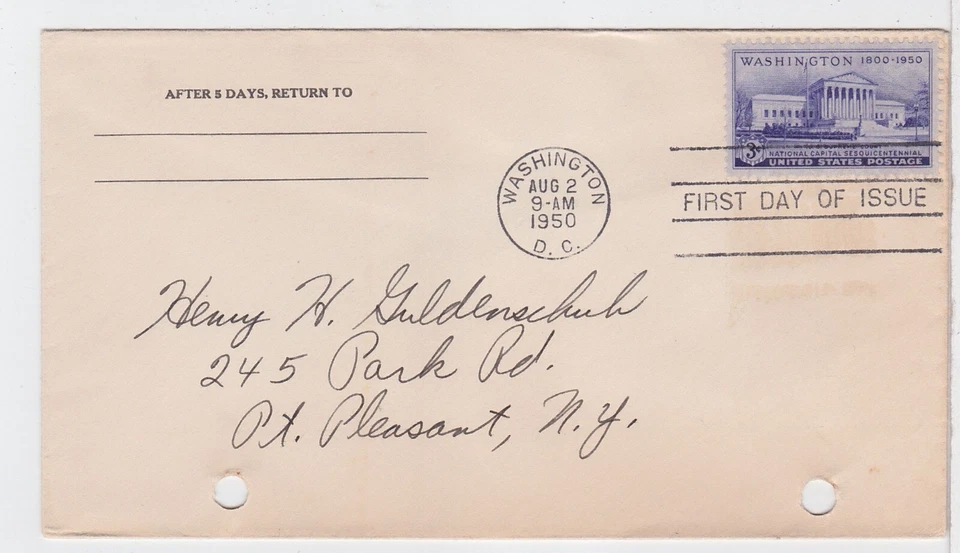 AFTER 5 DAYS, RETURN TO
WASHINGTON 1800-1950
3¢
NATIONAL CAPITAL SESQUICENTENNIAL
UNITED STATES POSTAGE
WASHINGTON
AUG 2
9-AM
1950
D. C.
FIRST DAY OF ISSUE
Henry H. Guldenschuh
245 Park Rd.
Pt. Pleasant, N.Y.